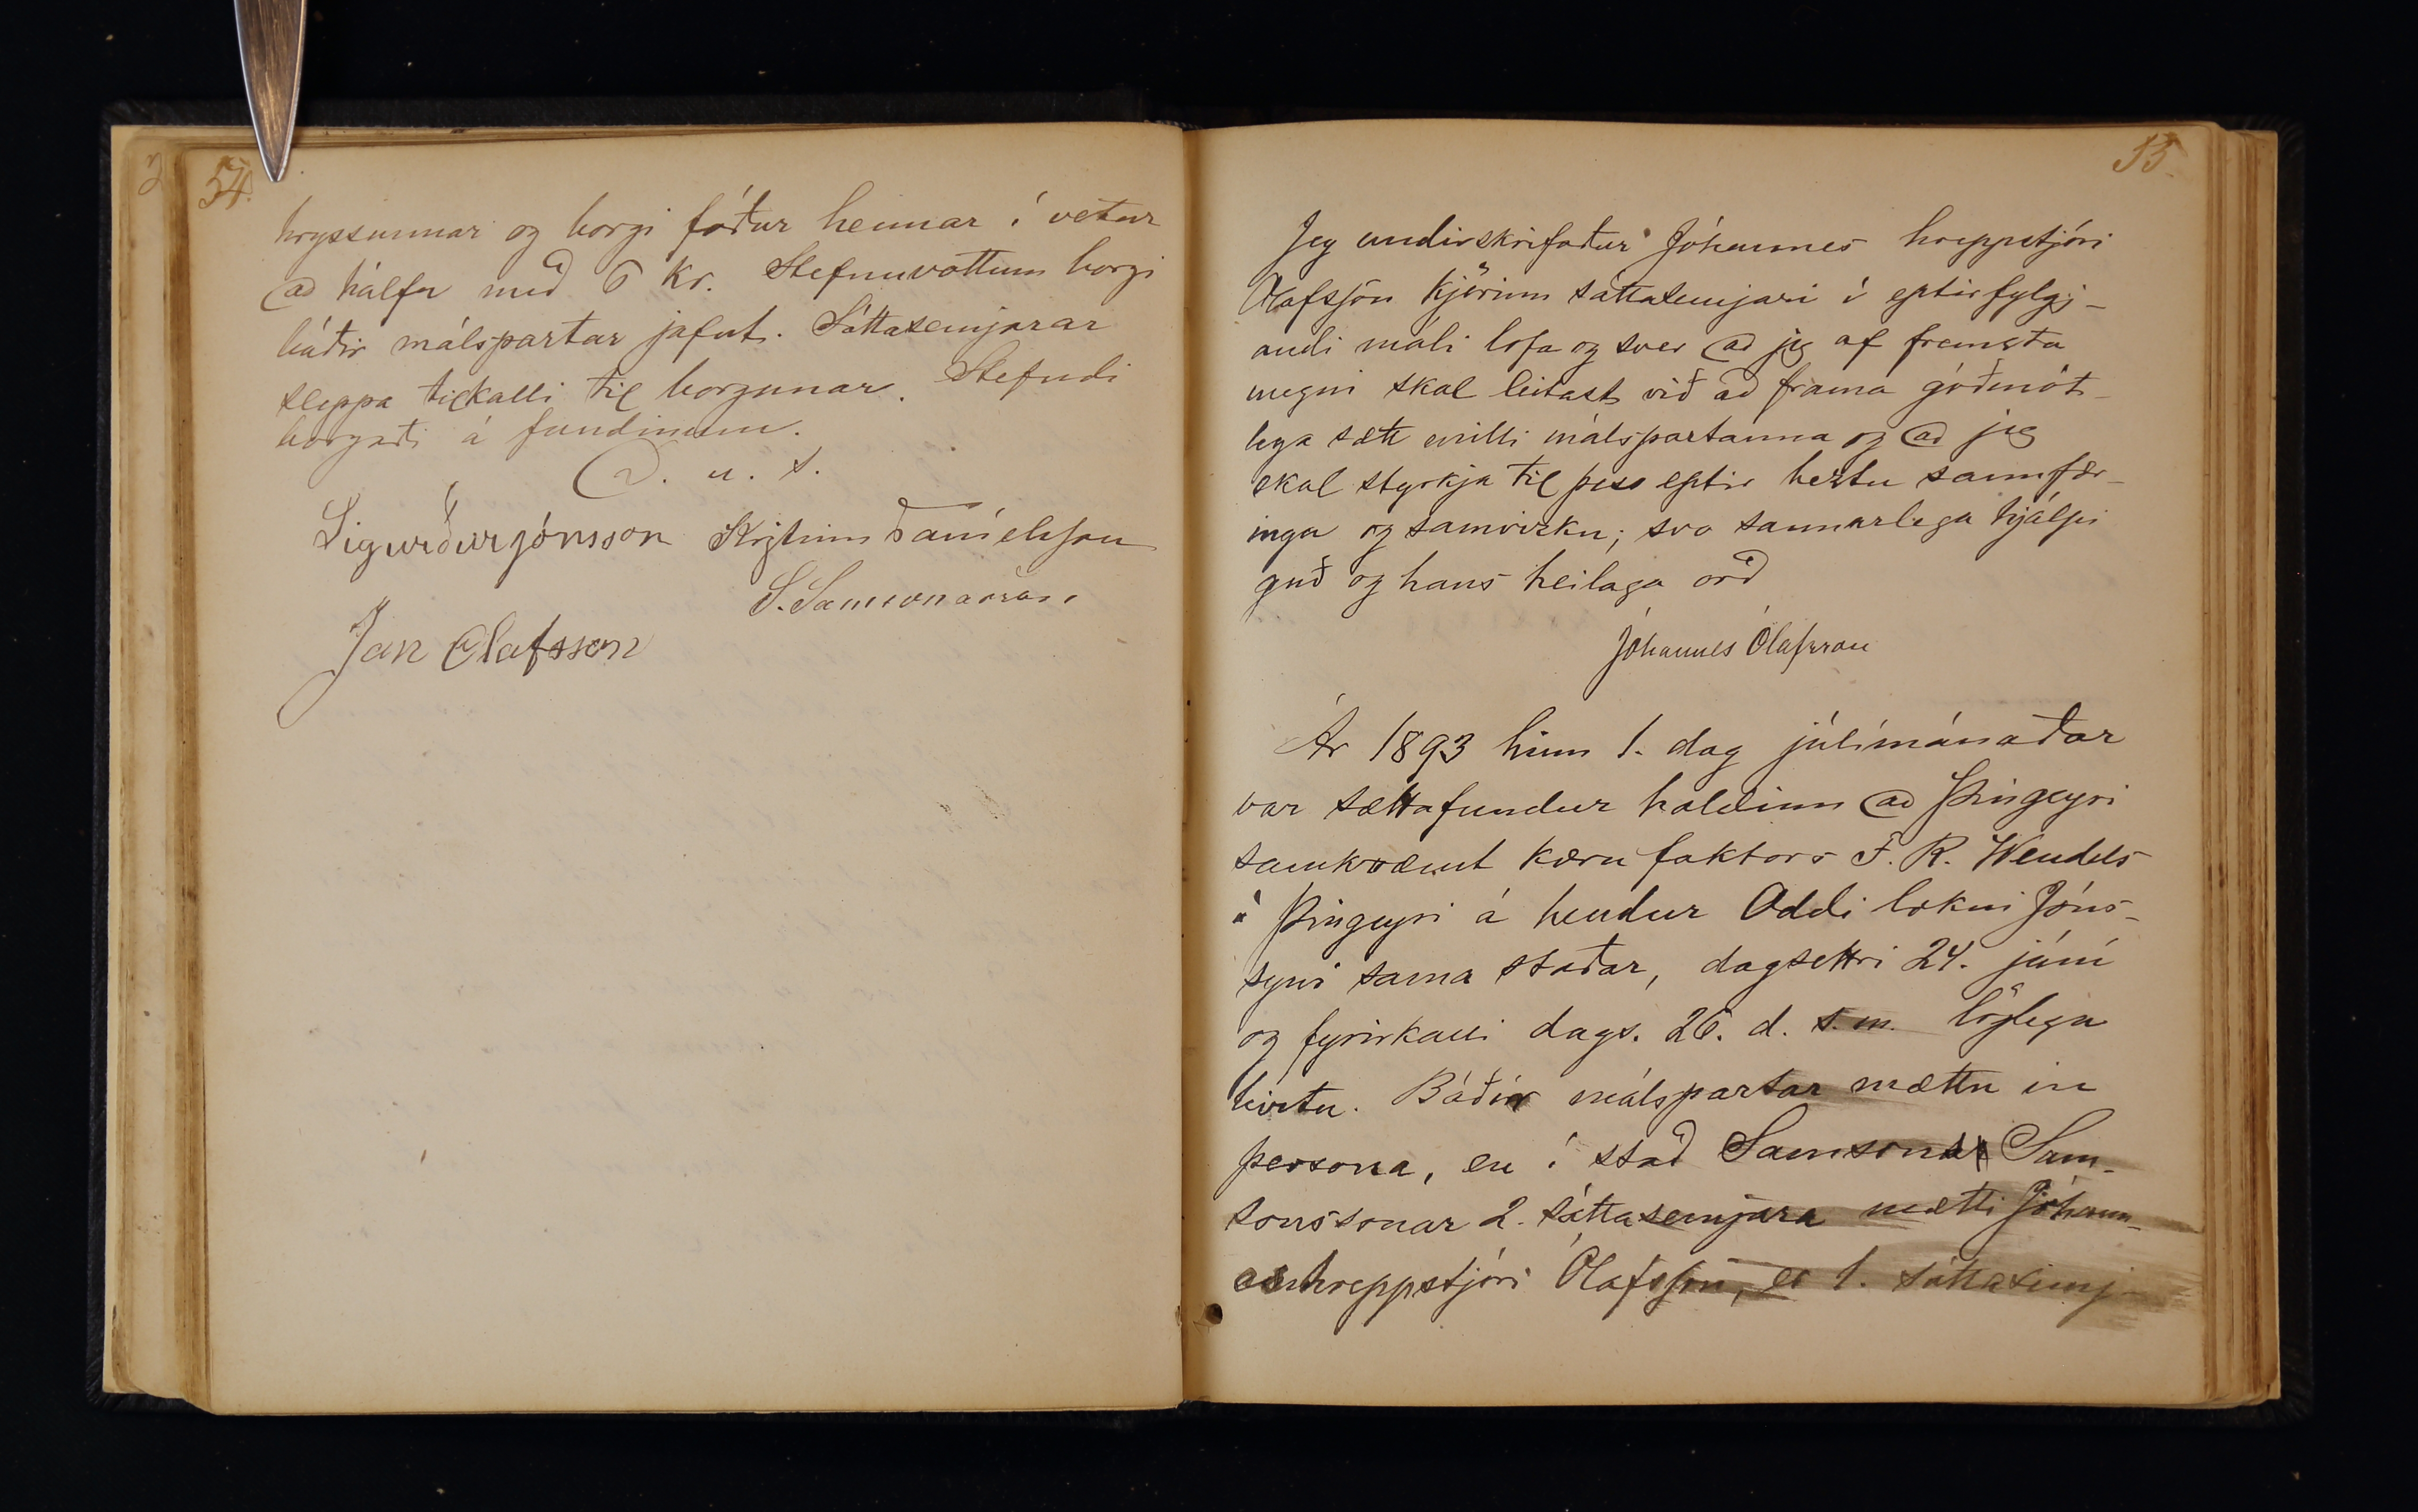 54.
hryssunnar og borgi fóður hennar í vetur
að hálfu með 6 kr. Stefnuvottum borgi
báðir málspartar jafnt. Sáttasemjarar
sleppa tilkalli til borgunar. Stefndi
borgaði á fundinum.
D. u. s.
Sigurður Jónsson Kristinn Daníelsson
S. Samsonarson.
Jón Ólafsson
55.
Jeg undirskrifaður Jóhannes hreppstjóri
Ólafsson kjörinn sáttasemjari í eptirfylgj-
andi máli lofa og sver að jeg af fremsta
megni skal leitast við að frama góðmót-
lega sætt milli málspartanna og að jeg
skal styrkja til þess eptir beztu sannfær-
ingu og samvizku; svo sannarlega hjálpi
guð og hans heilaga orð
Jóhannes Ólafsson
Ár 1893 hinn 1. dag júlímánaðar
var sættafundur haldinn að Þingeyri
samkvæmt kæru faktors F. R. Wendels
á Þingeyri á hendur Oddi lækni Jóns-
syni sama staðar, dagsettri 24. júní
og fyrirkalli dags. 26. d. s.m. löglega
birtu. Báðir málspartar mættu in
persona, en í stað Samsonar Sam-
sonssonar 2. sáttasemjara mætti Jóhann-
es hreppstjóri Ólafsson, er 1. sáttasemj-